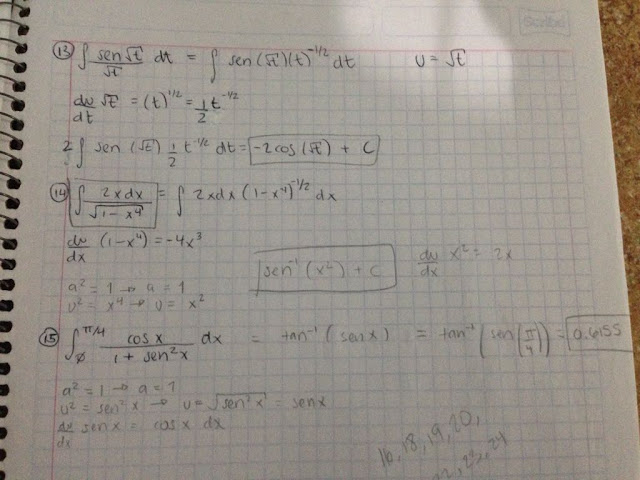 Scribe
13) ∫ sen√t/√t dt = ∫ sen (√t)(t)^-1/2 dt    u = √t
du/dt √t = (t)^1/2 = 1/2 t^-1/2
2 ∫ sen (√t) 1/2 t^-1/2 dt = -2cos(√t) + C
14) ∫ 2xdx/√(1-x⁴) = ∫ 2xdx (1-x⁴)^-1/2 dx
du/dx (1-x⁴) = -4x³
sen⁻¹(x²) + C    du/dx x² = 2x
a² = 1 → a = 1
u² = x⁴ → u = x²
15) ∫₀^π/4 cosx/(1+sen²x) dx = tan⁻¹(senx) = tan⁻¹(sen(π/4)) = 0.6155
a² = 1 → a = 1
u² = sen²x → u = √sen²x = senx
du/dx senx = cosx dx
16, 18, 19, 20,
22, 23, 24